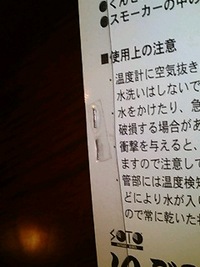 ●くんせ
●スモーカーの中の
■使用上の注意
・温度計に空気抜き
水洗いはしないで
水をかけたり、急
破損する場合があ
・衝撃を与えると、
ますので注意して
・管部には温度検知
どにより水が入り
ので常に乾いた
SOTO